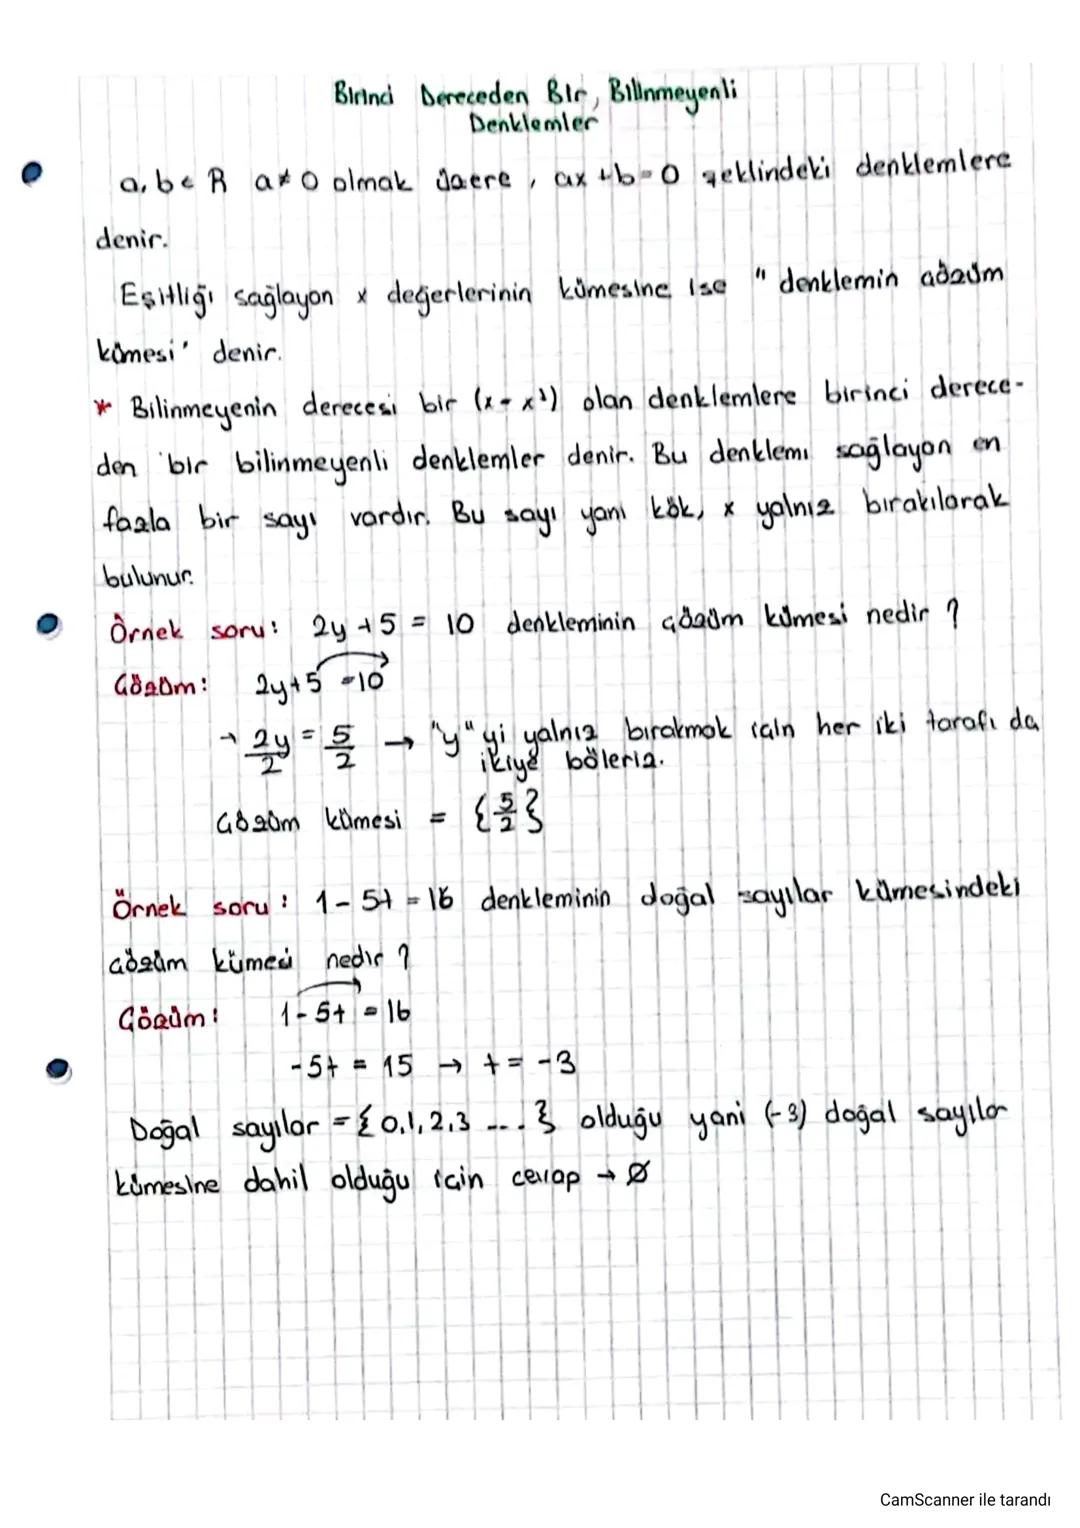 Birinci Dereceden Bir, Bilinmeyenli
Denklemler
a, b ∈ R a ≠ 0 olmak üzere, ax + b = 0 şeklindeki denklemlere
denir.
Eşitliği sağlayan x değerlerinin kümesine ise "denklemin çözüm
kümesi" denir.
* Bilinmeyenin derecesi bir (x = x¹) olan denklemlere birinci derece-
den bir bilinmeyenli denklemler denir. Bu denklemi sağlayan en
fazla bir sayı vardır. Bu sayı yani kök, x yalnız bırakılarak
bulunur.
Örnek soru: 2y + 5 = 10 denkleminin çözüm kümesi nedir?
Çözüm: 2y + 5 = 10
→ 2y/2 = 5/2 → "y" yi yalnız bırakmak için her iki tarafı da
ikiye böleriz.
Çözüm kümesi = {5/2}
Örnek soru: 1 - 5t = 16 denkleminin doğal sayılar kümesindeki
çözüm kümesi nedir?
Çözüm: 1 - 5t = 16
-5t = 15 → t = -3
Doğal sayılar = {0,1,2,3 ....} olduğu yani (-3) doğal sayılar
kümesine dahil olduğu için cevap → Ø
CamScanner ile tarandı